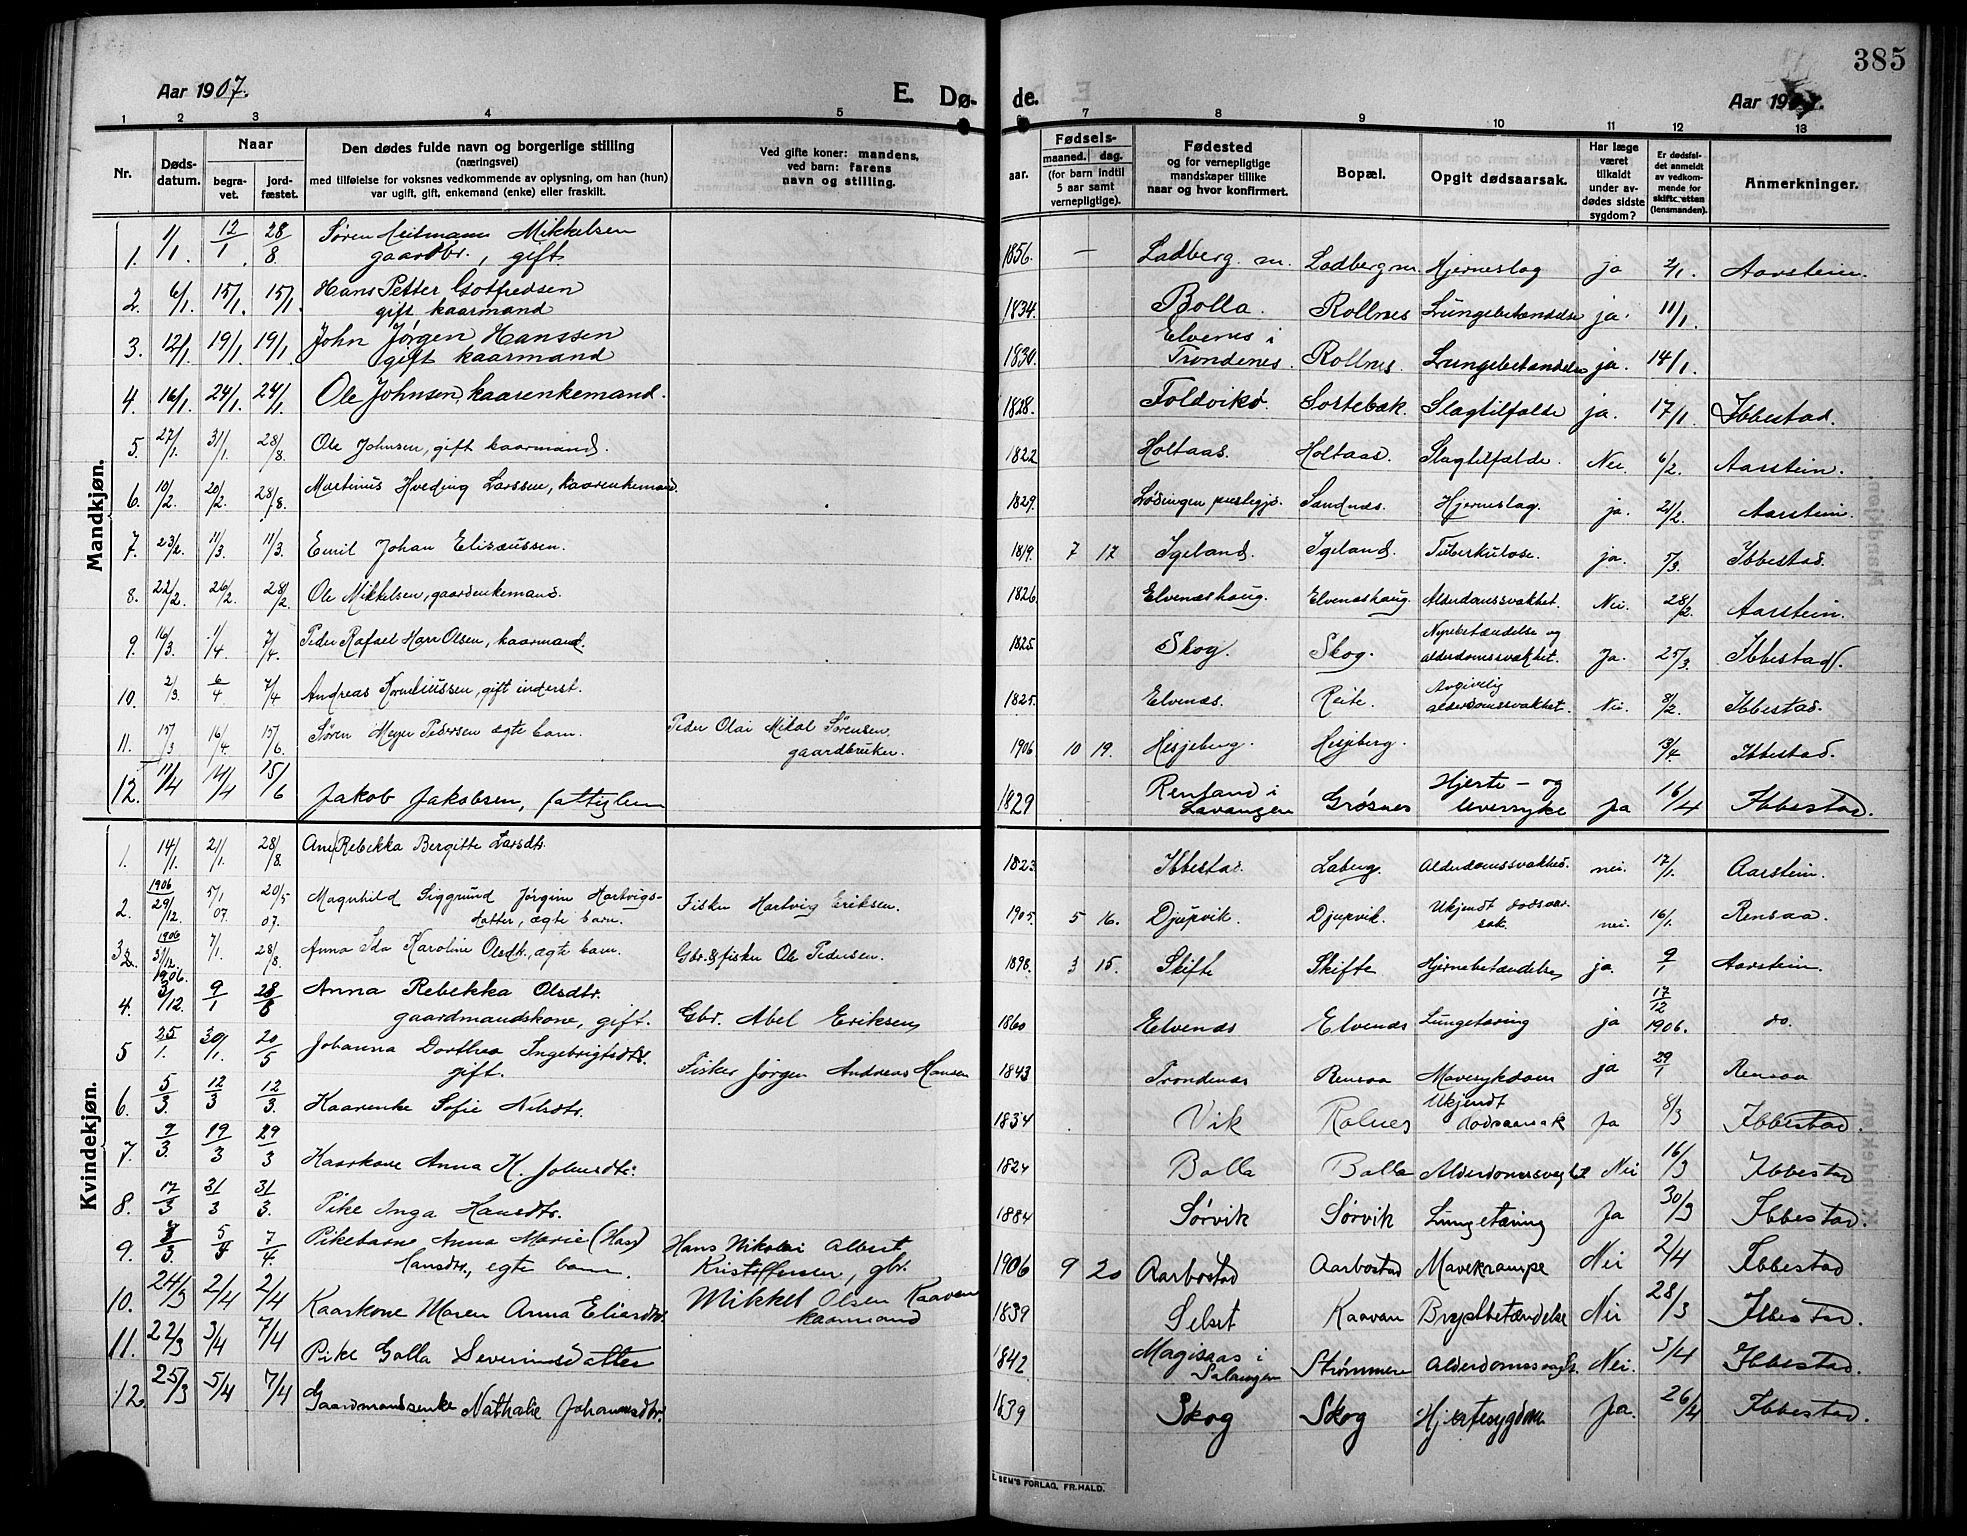 385
Aar 1907.
E. Dø-
de.
Aar 1907.
1 2 3 4 5 6 7 8 9 10 11 12 13
Nr.
Døds-datum.
Naar
begra-vet.
jord-fæstet.
Den dødes fulde navn og borgerlige stilling
(næringsvei)
med tilføielse for voksnes vedkommende av oplysning, om han (hun)
var ugift, gift, enkemand (enke) eller fraskilt.
Ved gifte koner: mandens,
ved barn: farens
navn og stilling.
Fødsels-
aar.
maaned.
dag.
(for barn indtil
5 aar samt
vernepligtige).
Fødested
og for vernepligtige
mandskaper tillike
naar og hvor konfirmert.
Bopæl.
Opgit dødsaarsak.
Har læge
været
tilkaldt
under av-
dødes sidste
sygdom?
Er dødsfal-
det anmeldt
av vedkom-
mende for
skifteretten
(lensmanden).
Anmerkninger.
Mandkjøn.
1. 1/1. 12/1. 28/8. Søren Heitmann Mikkelsen
gaardbr., gift. 1856. — Ladberg. m. Ladberg m. Hjerneslag ja 2/1. Aarstein.
2. 6/1. 15/1. 15/1. Hans Petter Gotfredsen
gift kaarmand 1834. Bolla Rollnes Lungebetændelse ja. 11/1.
3. 12/1. 19/1. 19/1. John Jørgen Hanssen
gift kaarmand 1830. Elvenes i
Trondenes. Rollnes. Lungebetændelse ja. 14/1.
4. 16/1. 24/1. 24/1. Ole Johnsen, kaarenkemand. 1828. Foldvik. Sortebak. Slagtilfælde ja. 17/1 Ibbestad.
5. 27/1. 31/1. 28/8. Ole Johnsen, gift kaarmand. 1822 Holtaas. Holtaas. Slagtilfælde. Nei. 6/2. Aarstein.
6. 10/2. 20/2. 28/8. Martinus Hveding Larssen, kaarenkemand. 1829. Lødingen prestegj. Sandnes. Hjerneslag. ja. 21/2. Aarstein.
7. 23/2. 11/3. 11/3. Emil Johan Elisæussen. 1819. 7 12 Igeland. Igeland. Tuberkulose. ja. 5/3. Ibbestad.
8. 22/2. 26/2. 28/2. Ole Mikkelsen, gaardenkemand. 1826. Elveneshaug. Elveneshaug. Alderdomssvakhet. Nei. 28/2. Aarstein.
9. 16/3. 1/4. 7/4. Peder Rafael Harr Olsen, kaarmand. 1825. Skog. Skog. Nyrebetændelse og
alderdomssvakhet. Ja. 25/3. Ibbestad.
10. 2/3. 6/4 7/4 Andreas Korneliussen, gift inderst. 1825. Elvenes. Reite. Angivelig
alderdomssvakhet. Nei. 8/2. Ibbestad.
11. 15/3 16/4. 15/6. Søren Meyer Pedersen ægte barn. Peder Olai Mikal Sørensen,
gaardbruker. 1906 10 19. Hesjeberg. Hesjeberg. 13/4. Ibbestad.
12. 11/4 21/4 15/6 Jakob Jakobsen, fattiglem 1829 Renland i
Lavangen Grøsnes Hjerte- og
leversyke ja 16/4 Ibbestad.
Kvindekjøn.
1. 14/1. 21/1. 28/8. Ane Rebekka Bergitte Larsdtr. 1823. Ibbestad. Laberg. Alderdomssvakhed. nei. 17/1. Aarstein.
2. 1906 29/12. 5/1 07. 20/5 07. Magnhild Siggrund Jørgine Hartvigs-
datter, ægte barn. Fisker Hartvig Eriksen. 1905. 5 16. Djupvik. Djupvik. Ukjendt dødsaar-
sak. nei. 16/1. Rensaa.
3. 1906 31/12. 7/1. 28/8. Anna Ida Karoline Olsdtr. ægte barn. Gbr. & fisker Ole Pedersen. 1898. 3 15. Skifte Skifte Hjernebetændelse ja. 9/1 Aarstein.
4. 1906. 3/12. 9/1 28/8 Anna Rebekka Olsdtr.
gaardmandskone, gift. Gbr. Abel Eriksen 1860 Elvenes Elvenes Lungetæring ja 17/12 1906. do.
5 25/1. 30/1. 20/5 Johanna Dorthea Ingebrigtsdtr.
gift. Fisker Jørgen Andreas Hansen 1843 Trondenes Rensaa Mavesykdom ja 29/1 Rensaa
6. 5/3. 12/3 12/3. Kaarenke Sofie Nilsdtr. 1834 Vik Rolnes Ukjendt
dødsaarsak Ja 8/3 Ibbestad.
7. 9/3. 19/3 29/3 Kaarkone Anna K. Johnsdtr. 1824 Bolla Bolla Alderdomssvaghet Nei 16/3 Ibbestad
8. 17/3 31/3 31/3. Pike Inga Hansdtr. 1884 Sørvik Sørvik Lungetæring Ja 30/3 Ibbestad.
9. 3/3. 5/4 7/4. Pikebarne Anna Marie (Has)
Hansdtr., egte barn. Hans Nikolai Albert
Kristoffersen, gbr. 1906 9 20 Aarbostad Aarbostad Mavekrampe Nei 2/4 Ibbestad
10. 24/3 2/4 2/4 Kaarkone Maren Anna Eliasdtr. Mikkel Olsen Kaavan
kaarmand 1839 Selset Kaavan Brystbetændelse Nei 28/3 Ibbestad.
11. 22/3 3/4 7/4 Pike Golla Severinsdatter 1842 Magisaas i
Salangen Strømmen Alderdomssvagh. Nei. 3/4 Ibbestad.
12. 25/3 5/4 7/4 Gaardmandsenke Nathalie Johannesdtr. 1839 Skog Skog Hjertesygdom Ja. 26/4 Ibbestad.
E. SEM'S FORLAG, FR.HALD.